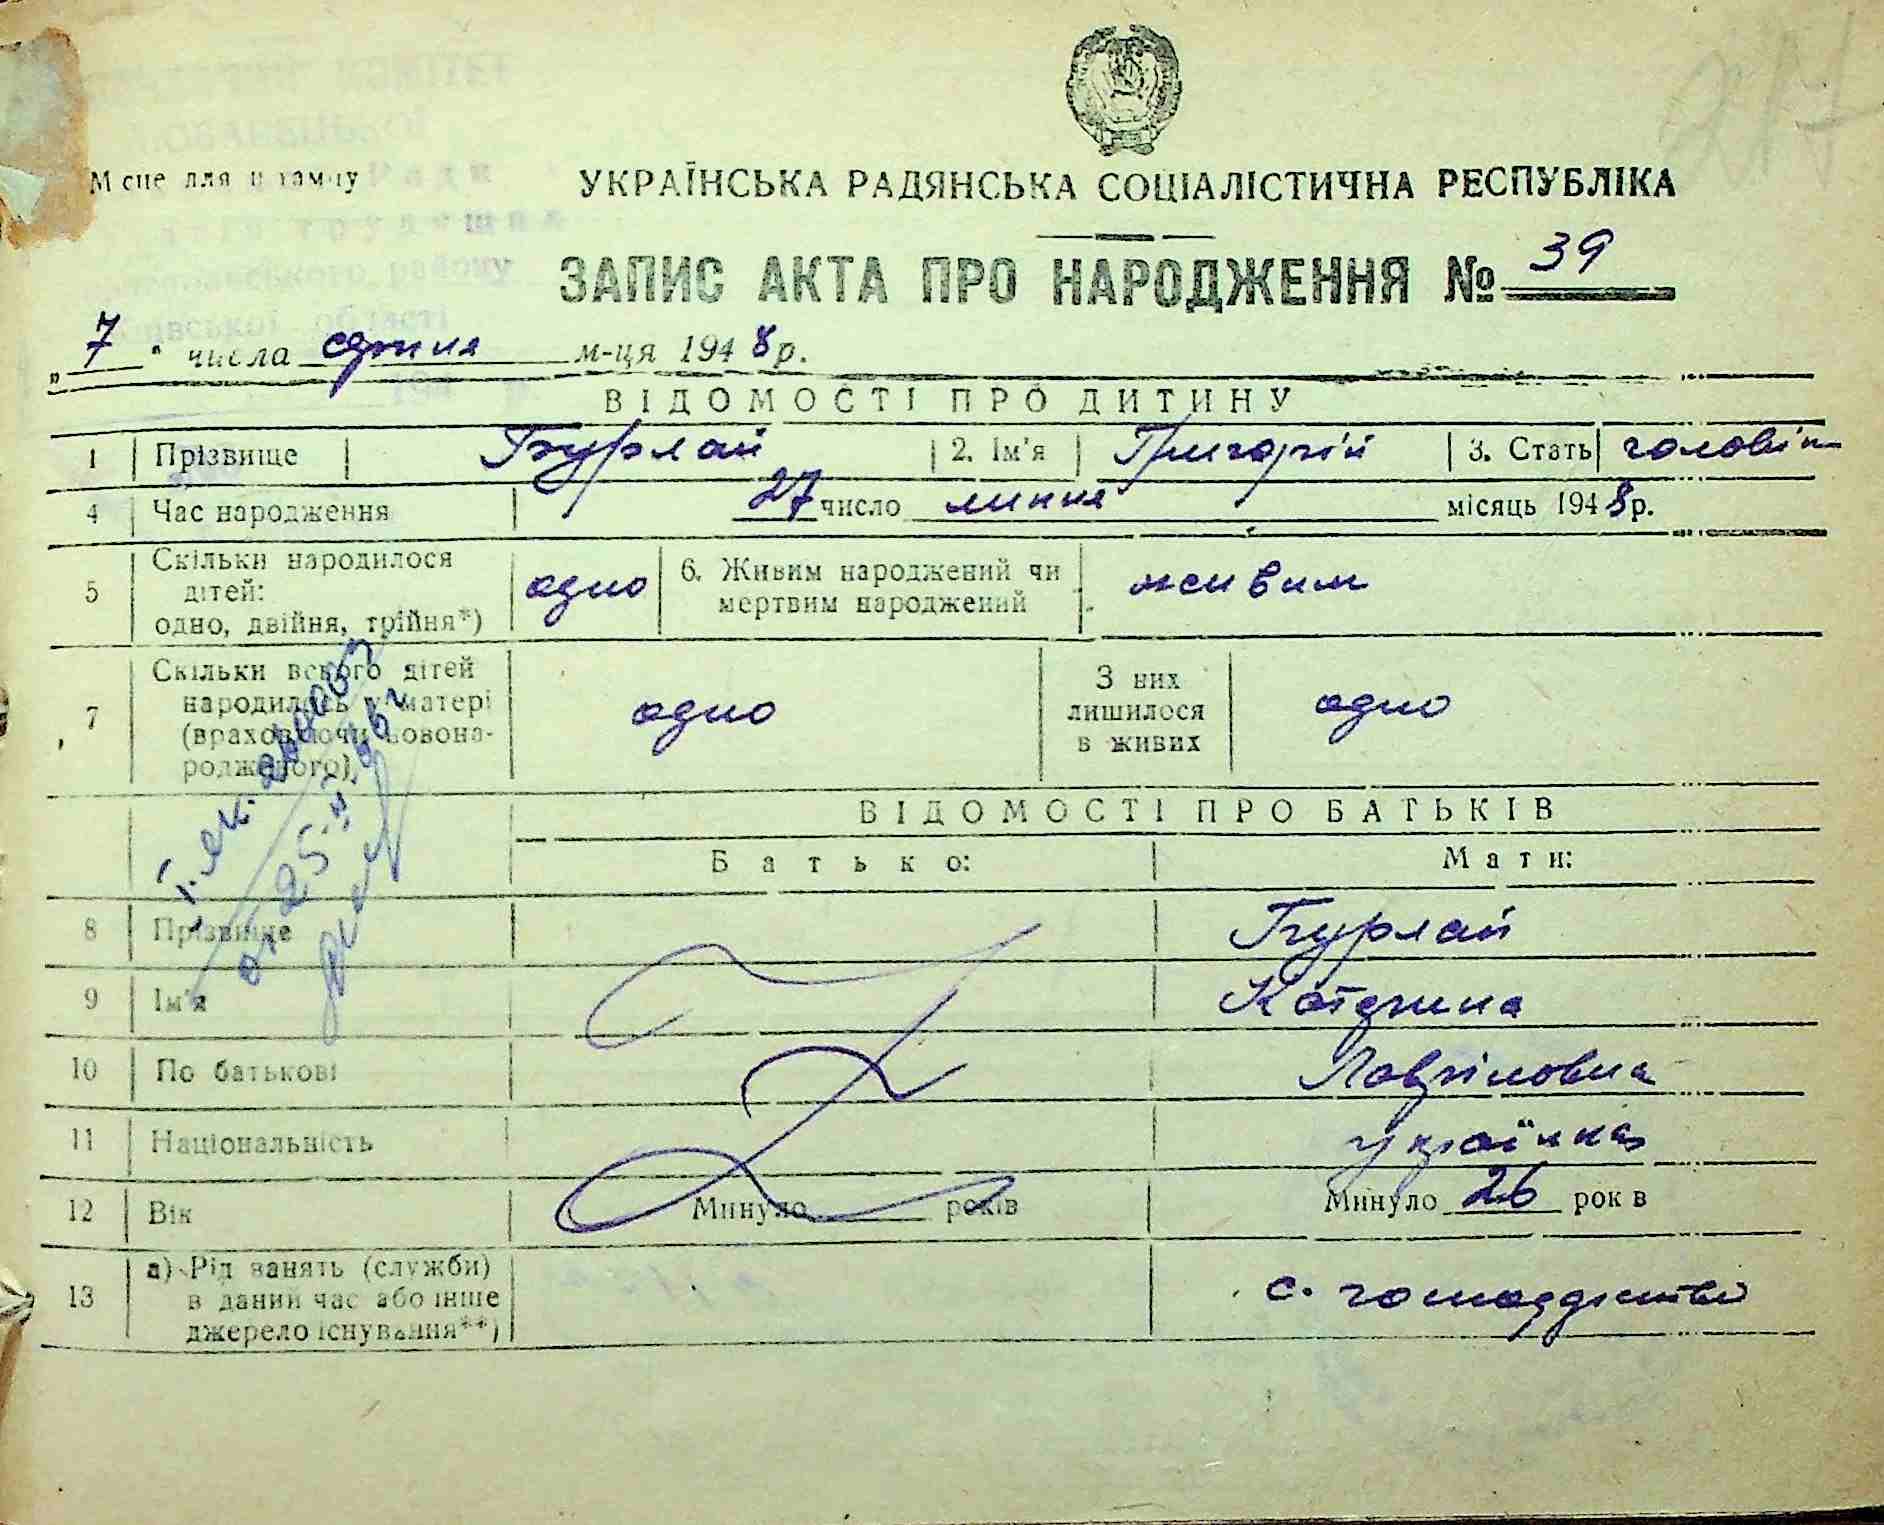 217
Місце для штампу
УКРАЇНСЬКА РАДЯНСЬКА СОЦІАЛІСТИЧНА РЕСПУБЛІКА
ЗАПИС АКТА ПРО НАРОДЖЕННЯ № 39
„7" числа серпня м-ця 1948 р.
ВІДОМОСТІ ПРО ДИТИНУ
1 Прізвище Бурлай 2. Ім'я Григорій 3. Стать
4 Час народження 27 число липня місяць 1948 р.
5 Скільки народилося дітей: одно, двійня, трійня*) одно 6. Живим народжений чи мертвим народжений живим
7 Скільки всього дітей народилось у матері (враховуючи новонародженого) одно З них лишилося в живих одно
ВІДОМОСТІ ПРО БАТЬКІВ
Батько: Мати:
8 Прізвище Бурлай
9 Ім'я Катерина
10 По батькові
11 Національність українка
12 Вік Минуло років Минуло 26 років
13 а) Рід занять (служби) в даний час або інше джерело існування**) с.
от 25